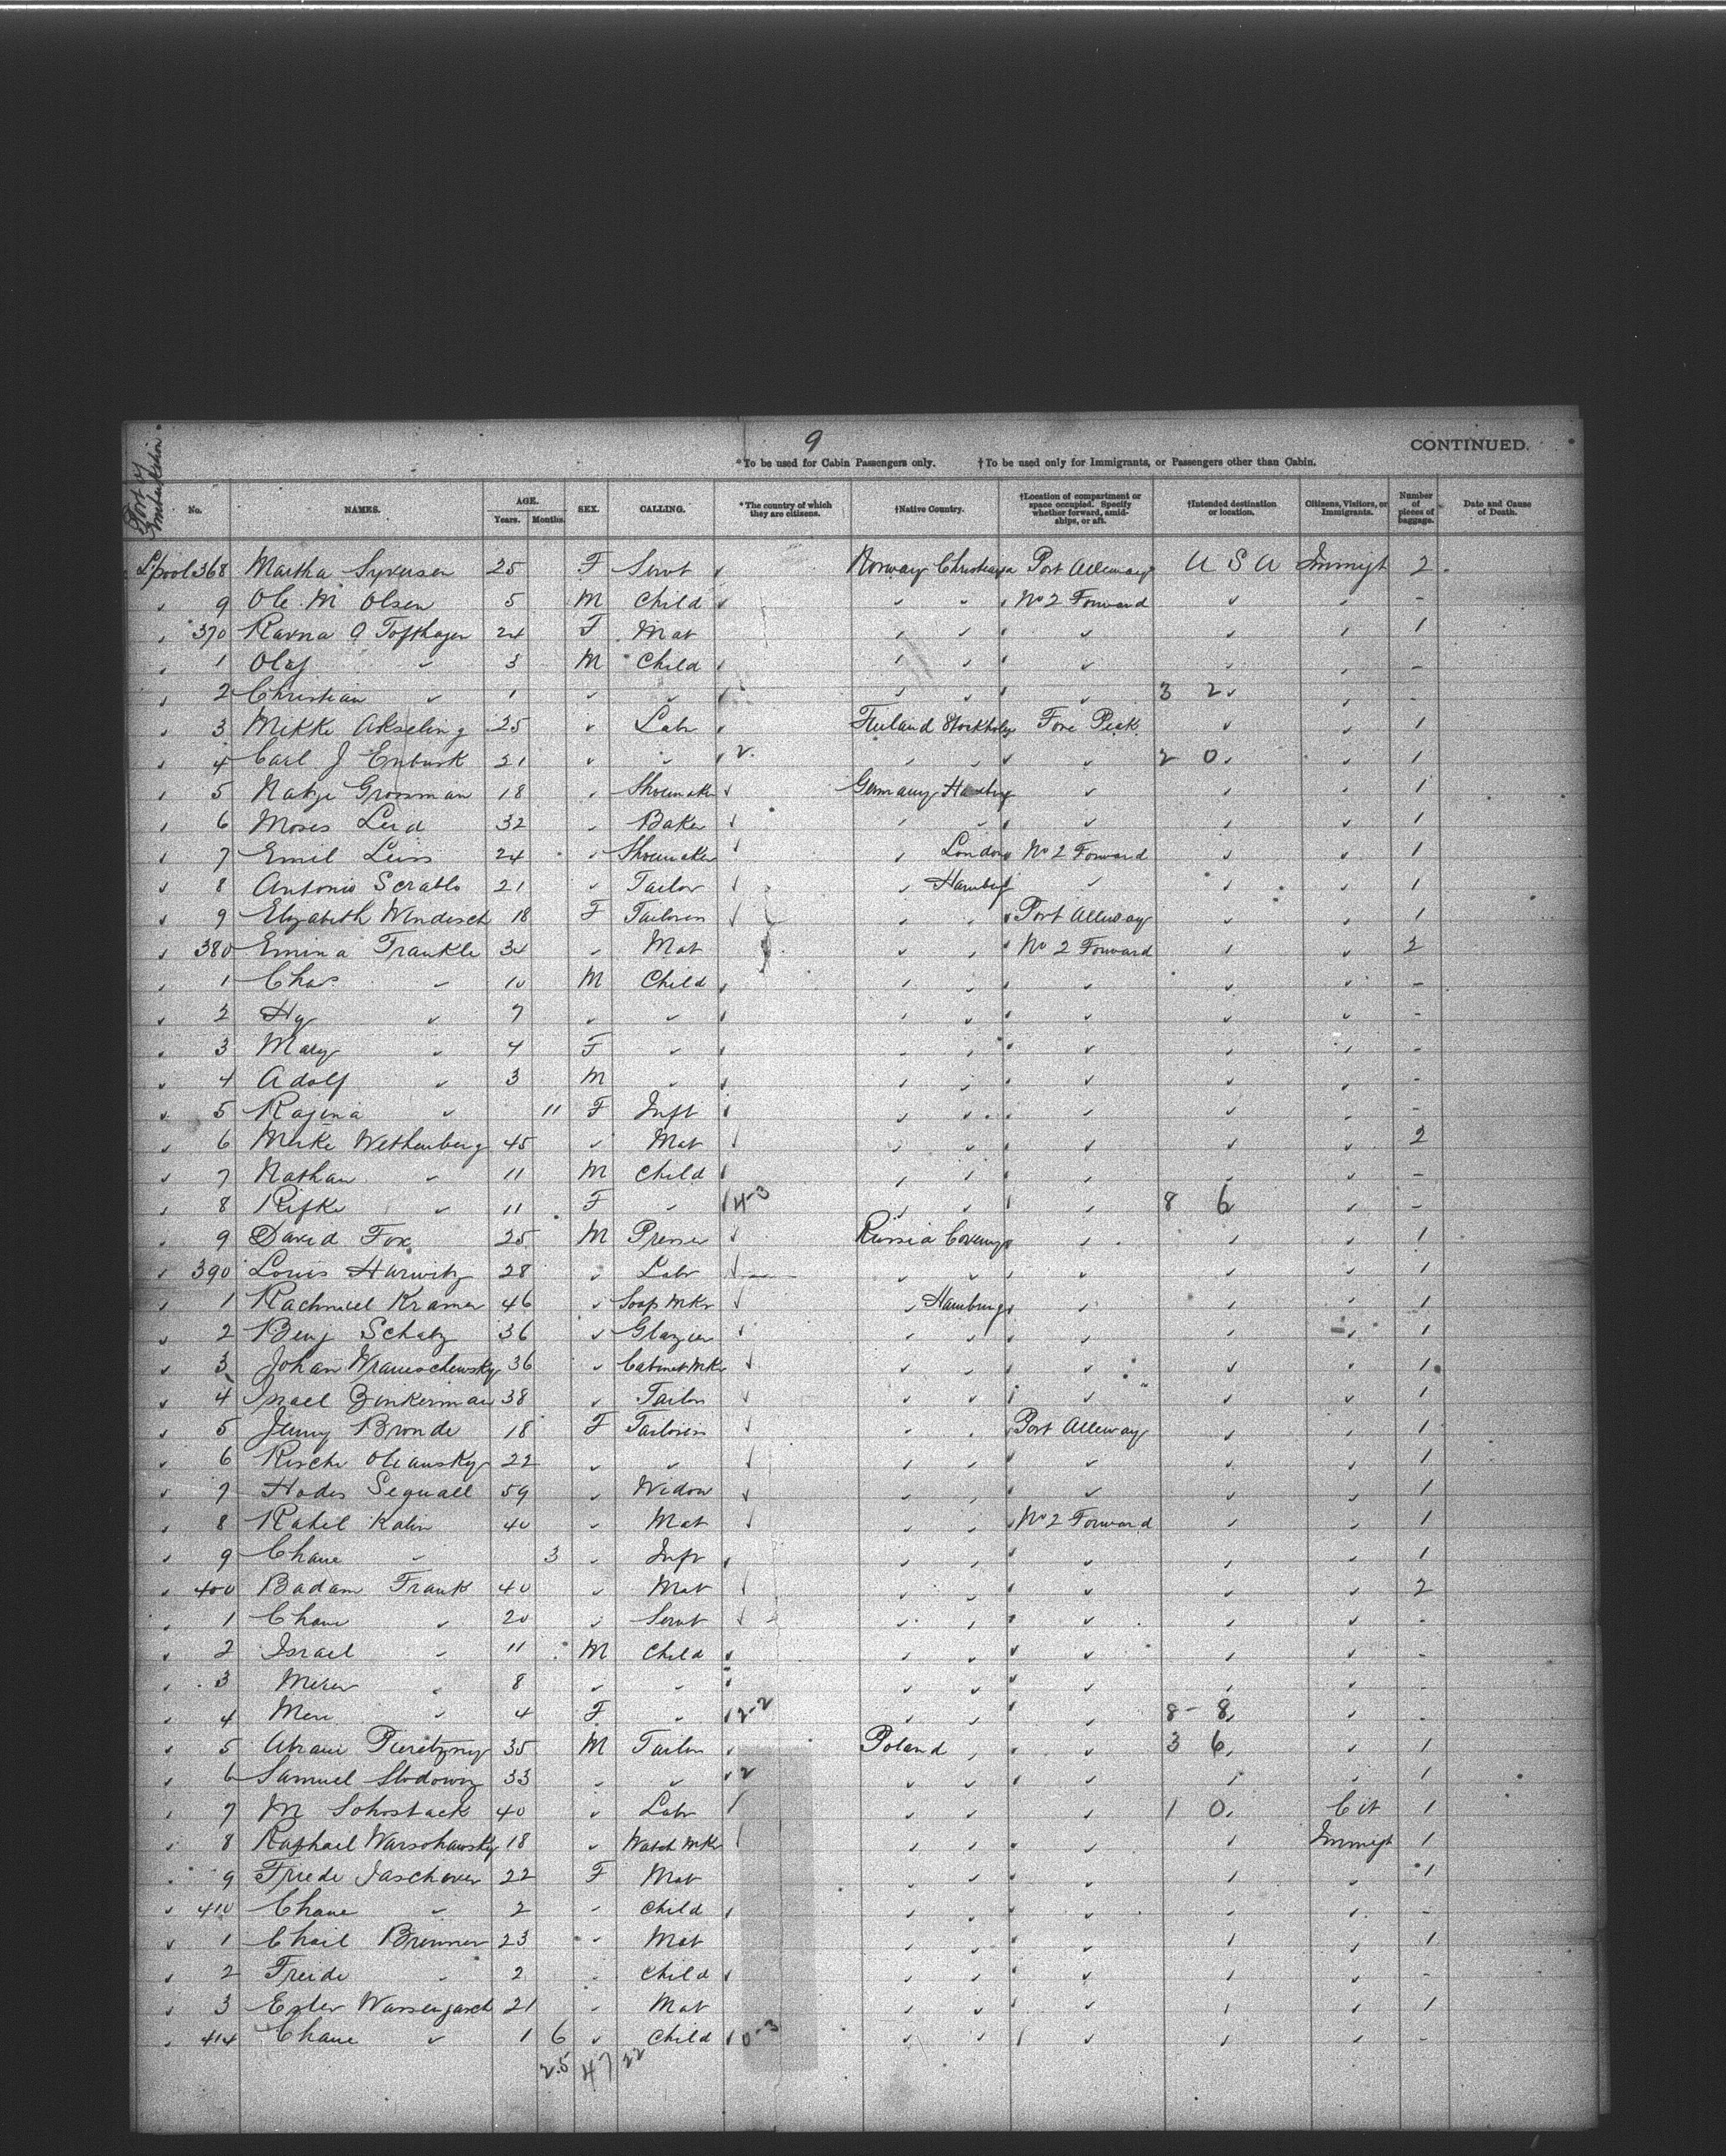 9
CONTINUED.
*To be used for Cabin Passengers only. †To be used only for Immigrants, or Passengers other than Cabin.
Port of Embarkation No. NAMES. AGE. Years. Months. SEX. CALLING. *The country of which they are citizens. †Native Country. †Location of compartment or space occupied. Specify whether forward, amidships, or aft. †Intended destination or location. Citizens, Visitors, or Immigrants. Number of pieces of baggage. Date and Cause of Death.
L'pool 368 Martha Syversen 25 F Servt Norway Christiania Port Alleway U S A Immigt 2
9 Ole M Olsen 5 M Child No 2 Forward -
370 Ravna O Tofthagen 24 F Mat 1
1 Olaf 3 M Child -
2 Christian 1 3 2 -
3 Mikke Akseling 25 Labr Finland Stockholm Fore Peak 1
4 Carl J Enbusk 21 2 2 0 1
5 Grossman 18 Shoemaker Germany Hamburg 1
6 Moses 32 Baker 1
7 Emil 24 Shoemaker London No 2 Forward 1
8 Antonio Scrablo 21 Tailor Hamburg 1
9 Elizabeth Windisch 18 F Tailoress Port Alleway 1
380 Emina Frankle 34 Mat No 2 Forward 2
1 Chas 10 M Child -
2 Hy 7 -
3 Mary 4 F -
4 Adolf 3 M -
5 Ragina 11 F Inft -
6 Mirke Wethenberg 45 Mat 2
7 Nathan 11 M Child -
8 Rifke 11 F 4-3 8 6 -
9 David Fox 25 M Presser Russia 1
390 Louis Hurwitz 28 Labr 1
1 Rachmiel Kramer 46 Soap Mkr Hamburg 1
2 Benj Schatz 36 Glazier 1
3 Johan 36 Cabinet Mkr 1
4 Israel Zinkerman 38 Tailor 1
5 Jenny Bronde 18 F Tailoress Port Alleway 1
6 Rische Oleansky 22 1
7 Hodes Seguall 59 Widow 1
8 Rahil Kahn 40 Mat No 2 Forward 1
9 Chane 3 Inft 1
400 Badam Frank 40 Mat 2
1 Chane 20 Servt -
2 Israel 11 M Child -
3 8 -
4 Mere 4 F 2-2 8-8 -
5 Abram 35 M Tailor Poland 3 6 1
6 Samuel Slodowy 33 2 1
7 M Schostack 40 Labr 1 0 Cit 1
8 Raphael Warschawsky 18 Watch Mkr Immigt 1
9 Friede Jaschover 22 F Mat 1
410 Chane 2 Child -
1 Brenner 23 Mat 1
2 Freide 2 Child -
3 Ester 21 Mat 1
414 Chane 1 6 Child 0-3 -
25 47 22